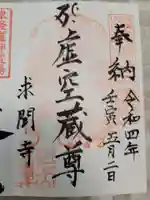 奉納
令和四年
壬寅五月二日
虚空蔵尊
求聞寺